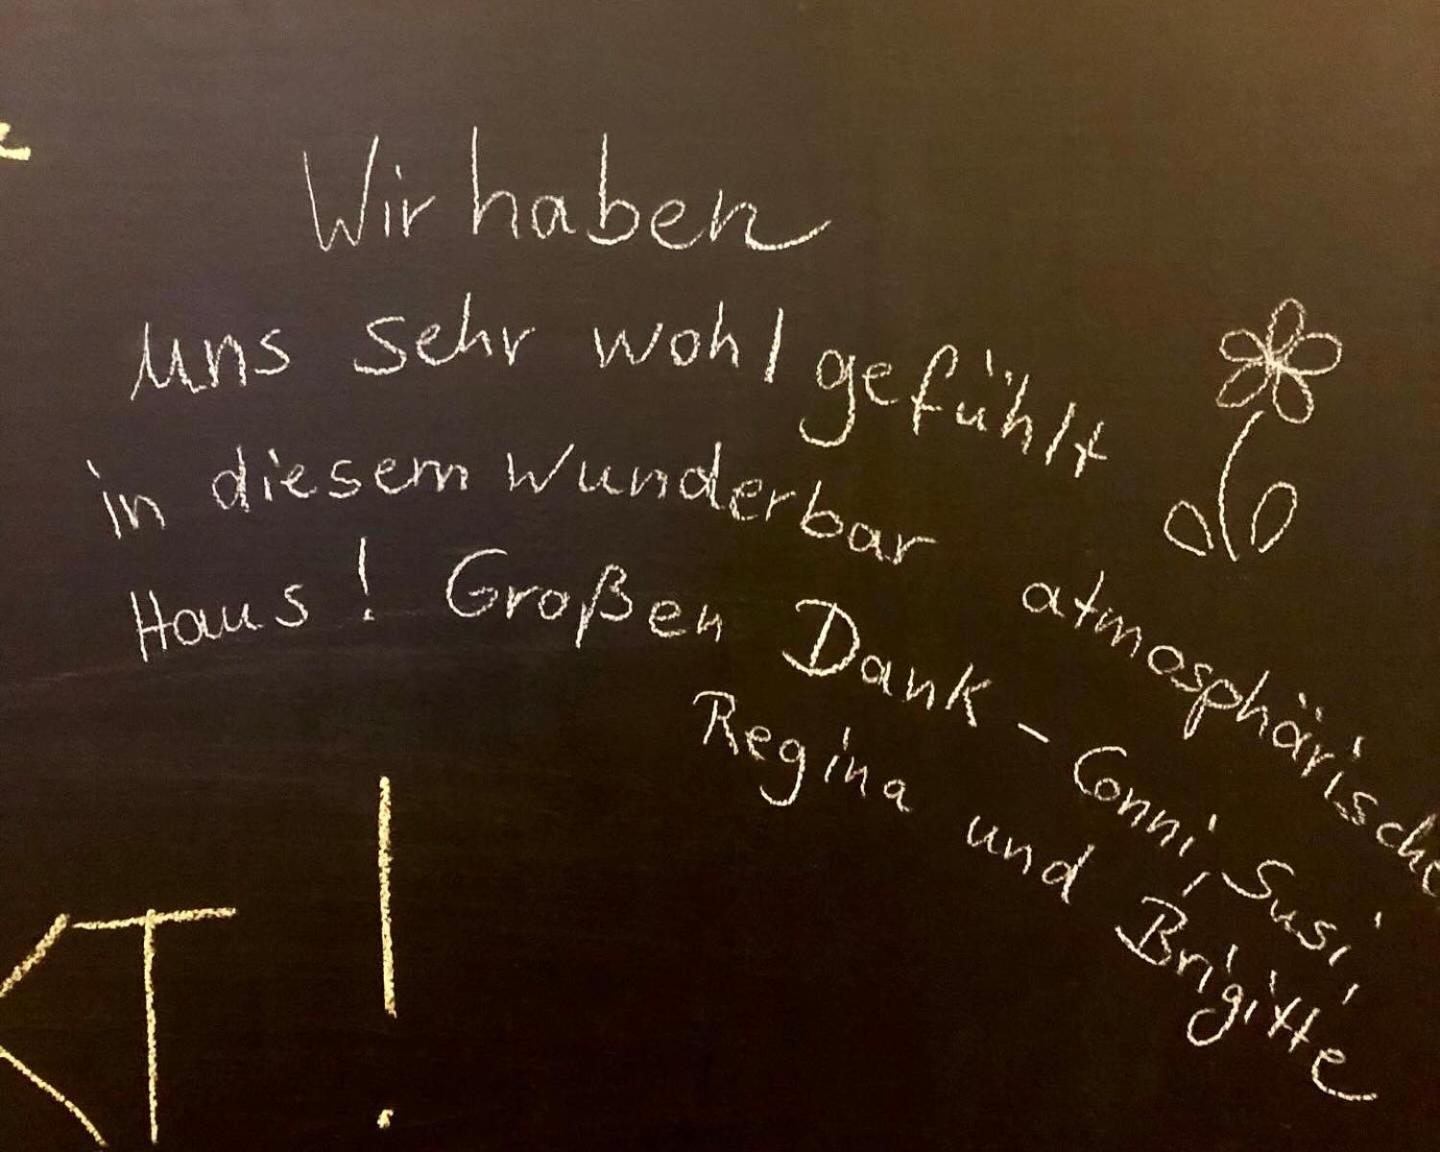 Wir haben
uns sehr wohl gefühlt
in diesem wunderbar atmosphärische
Haus! Großen Dank – Conni, Susi,
Regina und Brigitte
KT!